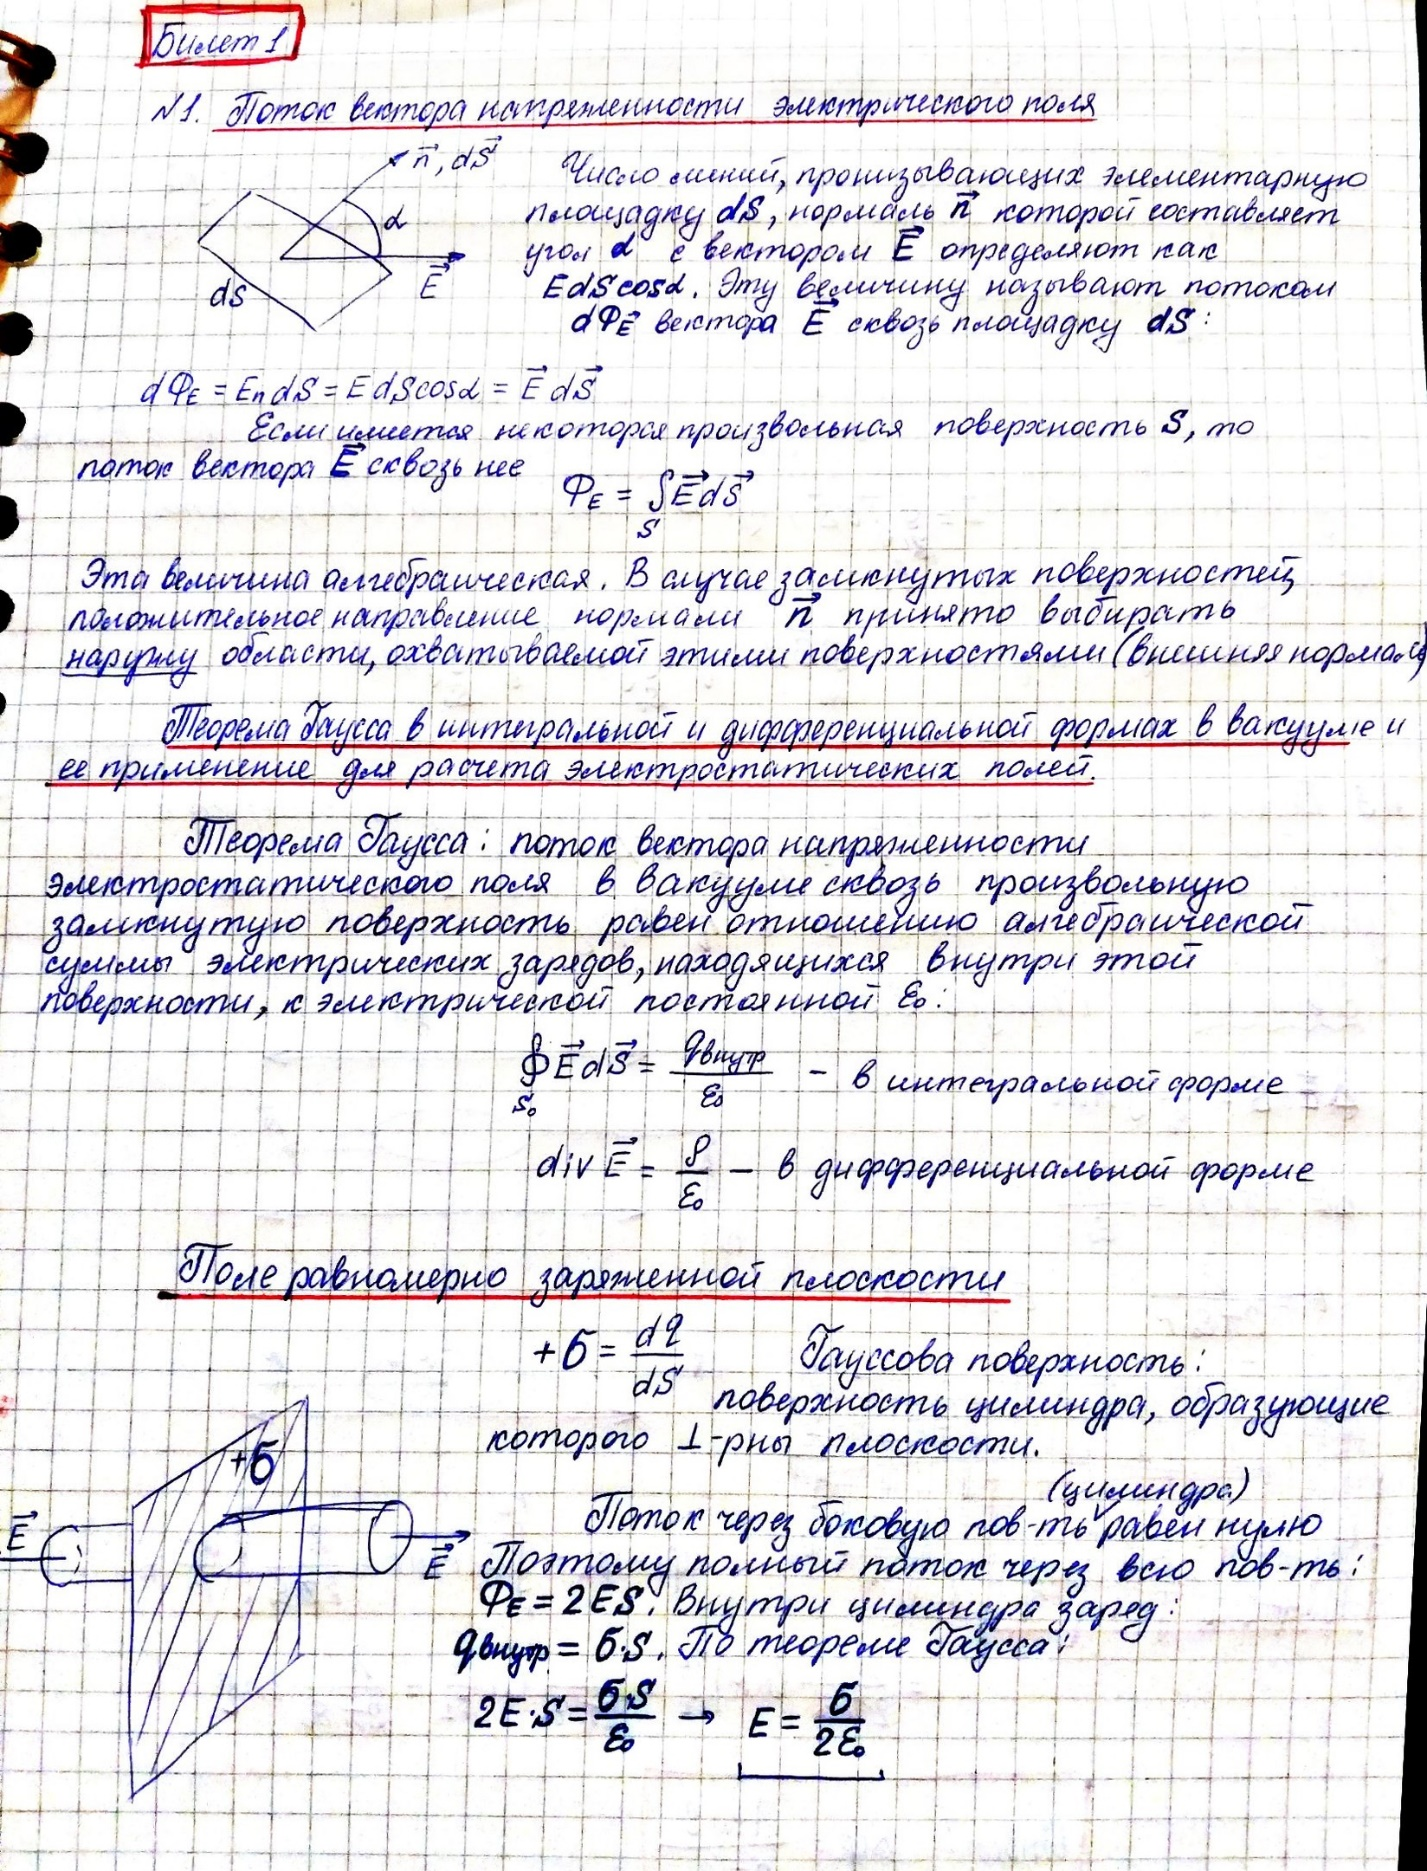 Билет 1
№1. Поток вектора напряженности электрического поля
n⃗, dS⃗
α
E⃗
dS
Число линий, пронизывающих элементарную
площадку dS, нормаль n⃗ которой составляет
угол α с вектором E⃗ определяют как
EdScosα. Эту величину называют потоком
dФE⃗ вектора E⃗ сквозь площадку dS:
dФE = EndS = EdScosα = E⃗dS⃗
Если имеется некоторая произвольная поверхность S, то
поток вектора E⃗ сквозь нее
ФE = ∫E⃗dS⃗
S
Эта величина алгебраическая. В случае замкнутых поверхностей,
положительное направление нормали n⃗ принято выбирать
наружу области, охватываемой этими поверхностями (внешняя нормаль)
Теорема Гаусса в интегральной и дифференциальной формах в вакууме и
ее применение для расчета электростатических полей.
Теорема Гаусса: поток вектора напряженности
электростатического поля в вакууме сквозь произвольную
замкнутую поверхность равен отношению алгебраической
суммы электрических зарядов, находящихся внутри этой
поверхности, к электрической постоянной ε₀:
∮E⃗dS⃗ = qвнутр/ε₀ - в интегральной форме
S₀
div E⃗ = ρ/ε₀ – в дифференциальной форме
Поле равномерно заряженной плоскости
+σ = dq/dS Гауссова поверхность:
поверхность цилиндра, образующие
которого ⊥-рны плоскости.
+σ
E⃗
E⃗
(цилиндра)
Поток через боковую пов-ть равен нулю
Поэтому полный поток через всю пов-ть:
ФE = 2ES. Внутри цилиндра заряд:
qвнутр = σ·S. По теореме Гаусса:
2E·S = σ·S/ε₀ → E = σ/2ε₀